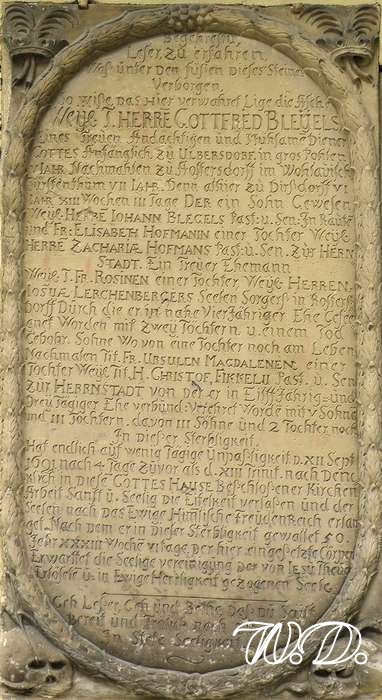 Begehrestu
Leser zu erfahren
Was unter den füssen dieses Steines
Verborgen.
So wisse, das Hier verwahret Lige die Asche
Weyl. T. HERRE GOTTFRED BLEYELS
Eines Treuen Andächtigen und Mühsame Diener
GOTTES Anfänglich zu ULBERSDORF in gros Pohlen
V JAHR Nachmahlen zu Rossersdorff im Wohlauisch
Fürstenthum VII IAHR. Denn alhier zu Dirsdorff VI
IAHR XIII Wochen III Tage DER ein Sohn Gewesen
Weyl. HERRE IOHANN BLEGELS Past. u. Sen. In
und Fr: ELISABETH HOFMANIN einer Tochter Weyl.
HERRE ZACHARIÆ HOFMANS Past. u. Sen. zur HERN
STADT. Ein Treuer Ehemann
Weyl. T. FR. ROSINEN einer Tochter Weyl. HERREN
IOSUÆ LERCHENBERGERS Seelen Sorgers in
dorff Durch die er in nahe Vierjähriger Ehe
Worden mit zwey Töchtern u. einem Tod
Gebohr. Sohne Wovon eine Tochter noch am Leben
Nachmalen Tit. Fr. URSULEN MAGDALENEN einer
Tochter Weyl. Tit. H. CHRISTOF. Past. u. Sen
zur HERRNSTADT von der er in Eilffjährig= und
Dreytägiger Ehe verbünd: Worde mit V Söhne
und III Töchtern, davon III Söhne und 2 Töchter noch
In dieser Sterbligkeit.
Hat endlich auf wenig Tägige Unpäsligkeit D. XII Sept
1691 nach 4 Tage zuvor als d. XIII Trinit. nach Dene
in diese GOTTES HAUSE Beschlosener Kirchen
Arbeit Sanft u. Seelig die Eitelkeit verlasen und der
Seelen nach Das Ewige Himlische freudenReich
Nach dem er in dieser Sterbligkeit gewallet 50.
Jahr XXXIII Woche VI tage, der hier eingesetzte Cörper
Erwartet die Seelige vereinigung der von Iesu Theur
Erlösete u: in Ewige Herrligkeit gezogenen Seele
Geh Leser, Geh und Bethe Das
Bereit und
In Seeligkeit
W.D.